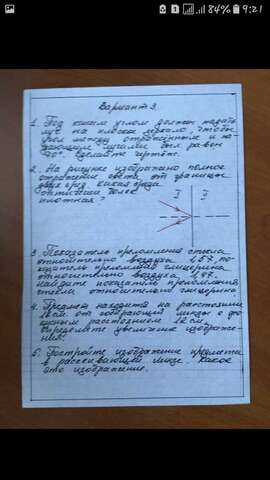 84% 9:21
Вариант 3.
1. Под каким углом должен падать
луч на плоское зеркало, чтобы
угол между отраженным и па-
дающим лучами был равен
Сделайте чертёж.
2. На рисунке изображено полное
отражение света от границы
двух сред. Какая среда
оптически более
плотная?
I I
3. Показатель преломления стекла
относительно воздуха 1,57, по-
казатель преломления глицерина
относительно воздуха
найдите показатель преломления
стекла относительно глицерина
4. Предмет находится на расстоянии
18 см от собирающей линзы с фо-
кусным расстоянием 12 см.
Определите увеличение изображе-
ния.
5. Постройте изображение предмета
в рассеивающей линзе. Какое
это изображение.